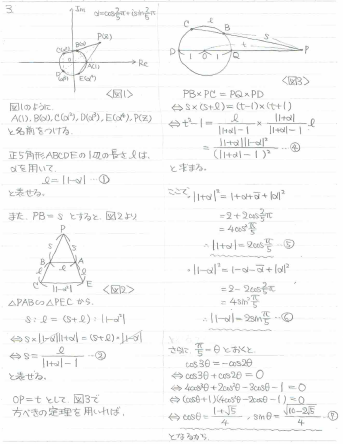 3.
Im
α=cos2/5π+isin2/5π
P(z)
C(α²)
B(α)
A(1)
D(α³)
E(α⁴)
Re
<図1>
図1のように
A(1), B(α), C(α²), D(α³), E(α⁴), P(z)
と名前をつける。
正5角形ABCDEの1辺の長さ l は、
αを用いて、
l = |1-α| …①
と表せる。
また、PB = s とすると、図2より
P
s
s
B
l
A
l
l
C
|1-α²|
E
<図2>
△PAB∽△PEC から、
s : l = (s+l) : |1-α²|
⇔ s×|1-α||1+α| = (s+l)・|1-α|
⇔ s = l/(|1+α|-1) …③
と表せる。
OP = t として 図3で
方べきの定理を用いれば、
C
l
B
s
t
D
1
O
1
Q
P
<図3>
PB×PC = PQ×PD
⇔ s×(s+l) = (t-1)×(t+1)
⇔ t²-1 = l/(|1+α|-1) × |1+α|/(|1+α|-1) l
= |1+α||1-α|²/(|1+α|-1)² …④
と求まる。
ここで、|1+α|² = 1+α+ᾱ+|α|²
= 2+2cos2/5π
= 4cos²π/5
∴ |1+α| = 2cosπ/5 …⑤
・|1-α|² = 1-α-ᾱ+|α|²
= 2-2cos2/5π
= 4sin²π/5
∴ |1-α| = 2sinπ/5 …⑥
さらに π/5=θ とおくと、
cos3θ = -cos2θ
⇔ cos3θ+cos2θ = 0
⇔ 4cos³θ+2cos²θ-3cosθ-1 = 0
⇔ (cosθ+1)(4cos²θ-2cosθ-1) = 0
⇔ cosθ = (1+√5)/4 , sinθ = √(10-2√5)/4 …⑦
となるから、